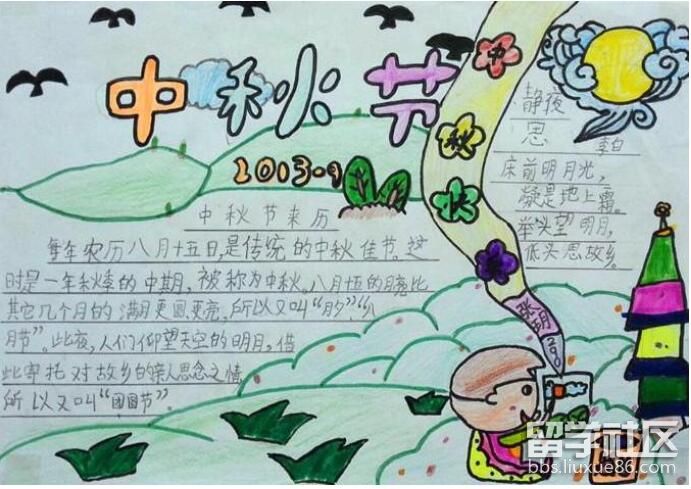 中秋节
2013.9
中秋快乐
静夜
思
李白
床前明月光，
疑是地上霜。
举头望明月，
低头思故乡。
中秋节来历
每年农历八月十五日，是传统的中秋佳节。这
时是一年秋季的中期，被称为中秋。八月十五的月亮比
其它几个月的满月更圆更亮，所以又叫“月夕”“八
月节”。此夜，人们仰望天空的明月，借
此寄托对故乡的亲人思念之情
所以又叫“团圆节”
留学社区
bbs.liuxue86.com